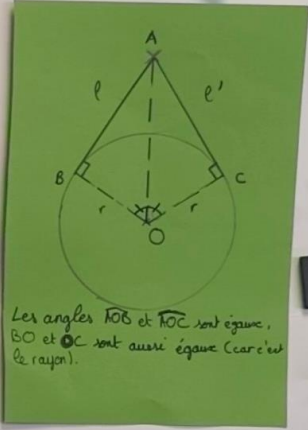 A
l
l'
B
C
r
r
O
Les angles AOB et AOC sont égaux,
BO et OC sont aussi égaux (car c'est
le rayon).